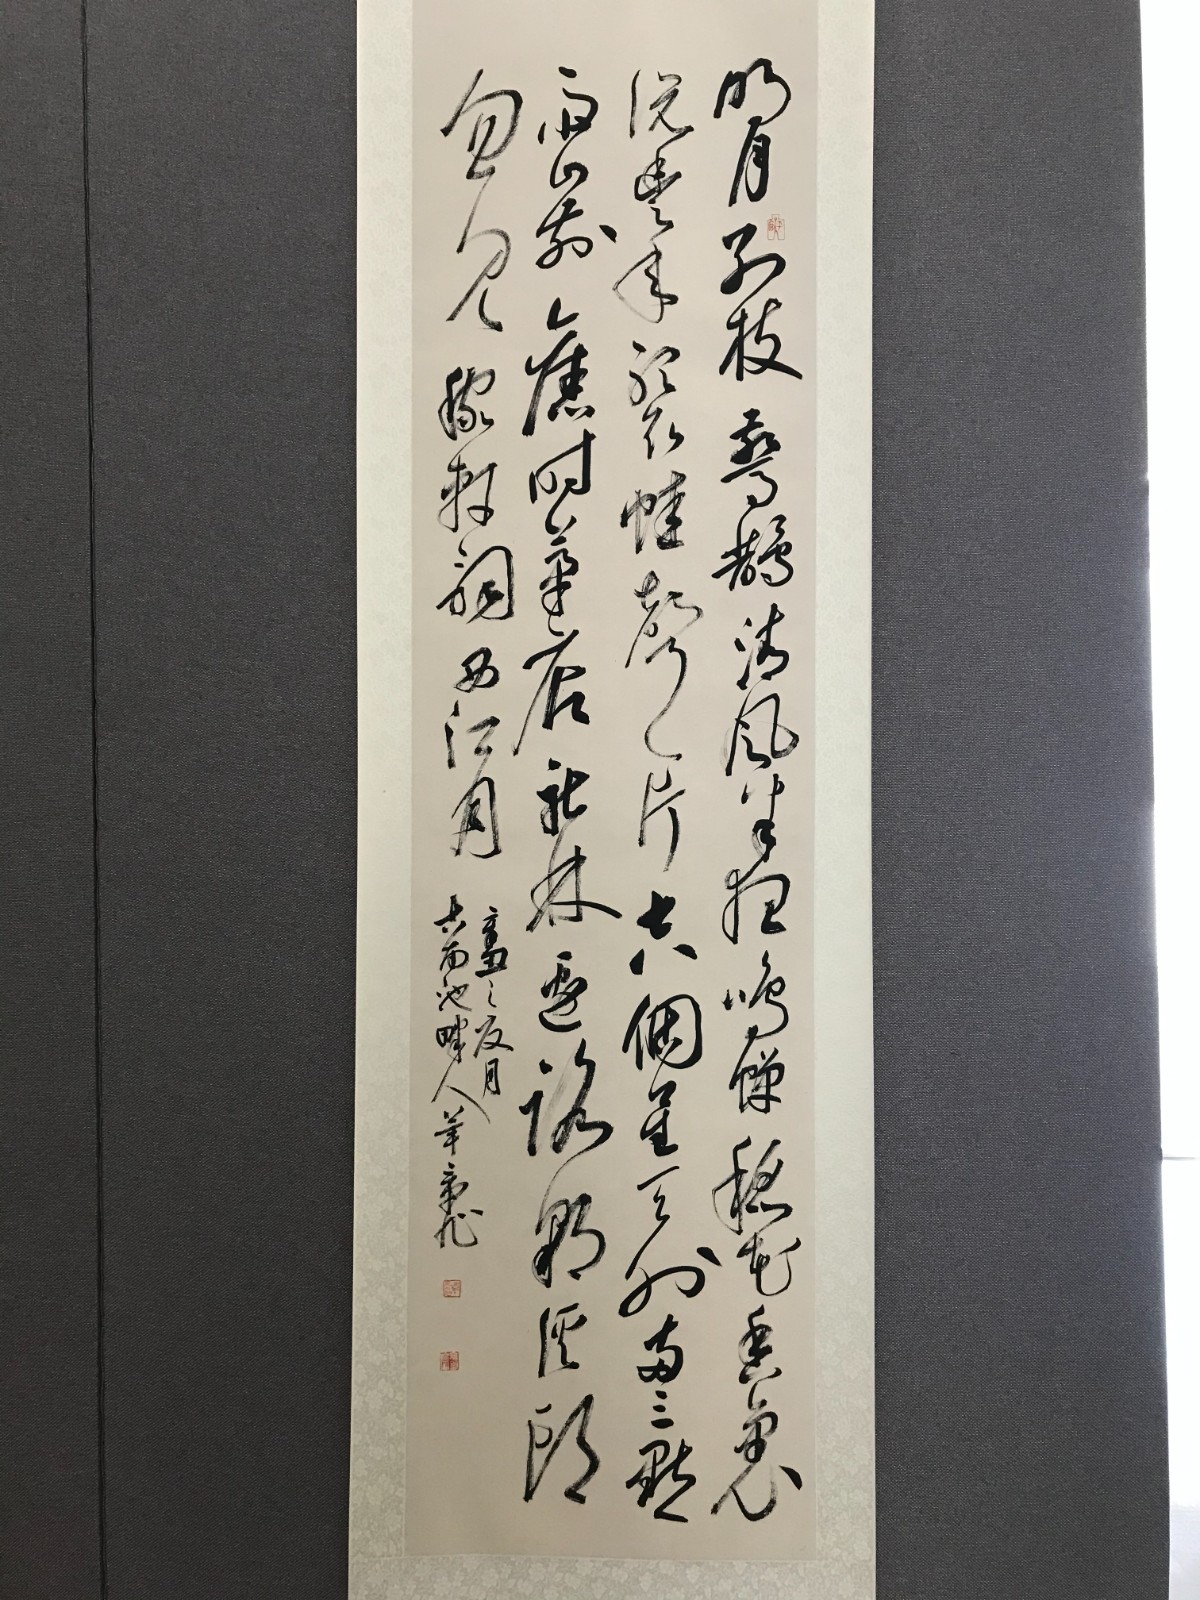 明月別枝驚鵲清風半夜鳴蟬稻花香裏
說豐年聽取蛙聲一片七八個星天外兩三點
雨山前舊時茅店社林邊路轉溪頭
忽見稼軒詞西江月
辛丑之夏月
古南池畔人